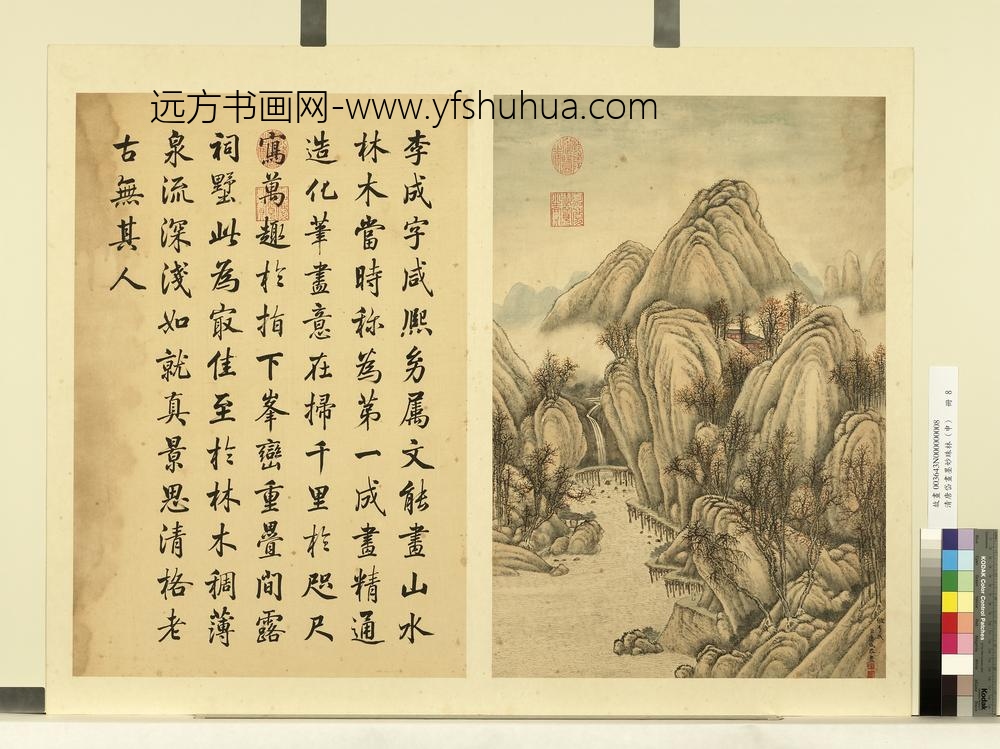 远方书画网-www.yfshuhua.com
李成字咸熙多属文能畫山水
林木當時称為第一成畫精通
造化筆盡意在掃千里於咫尺
寫萬趣於指下峯巒重疊間露
祠墅此為㝡佳至於林木稠薄
泉流深淺如就真景思清格老
古無其人
故畫 003643N000000008
清唐岱畫墨妙珠林（申） 冊 8
KODAK Color Control Patches
Kodak